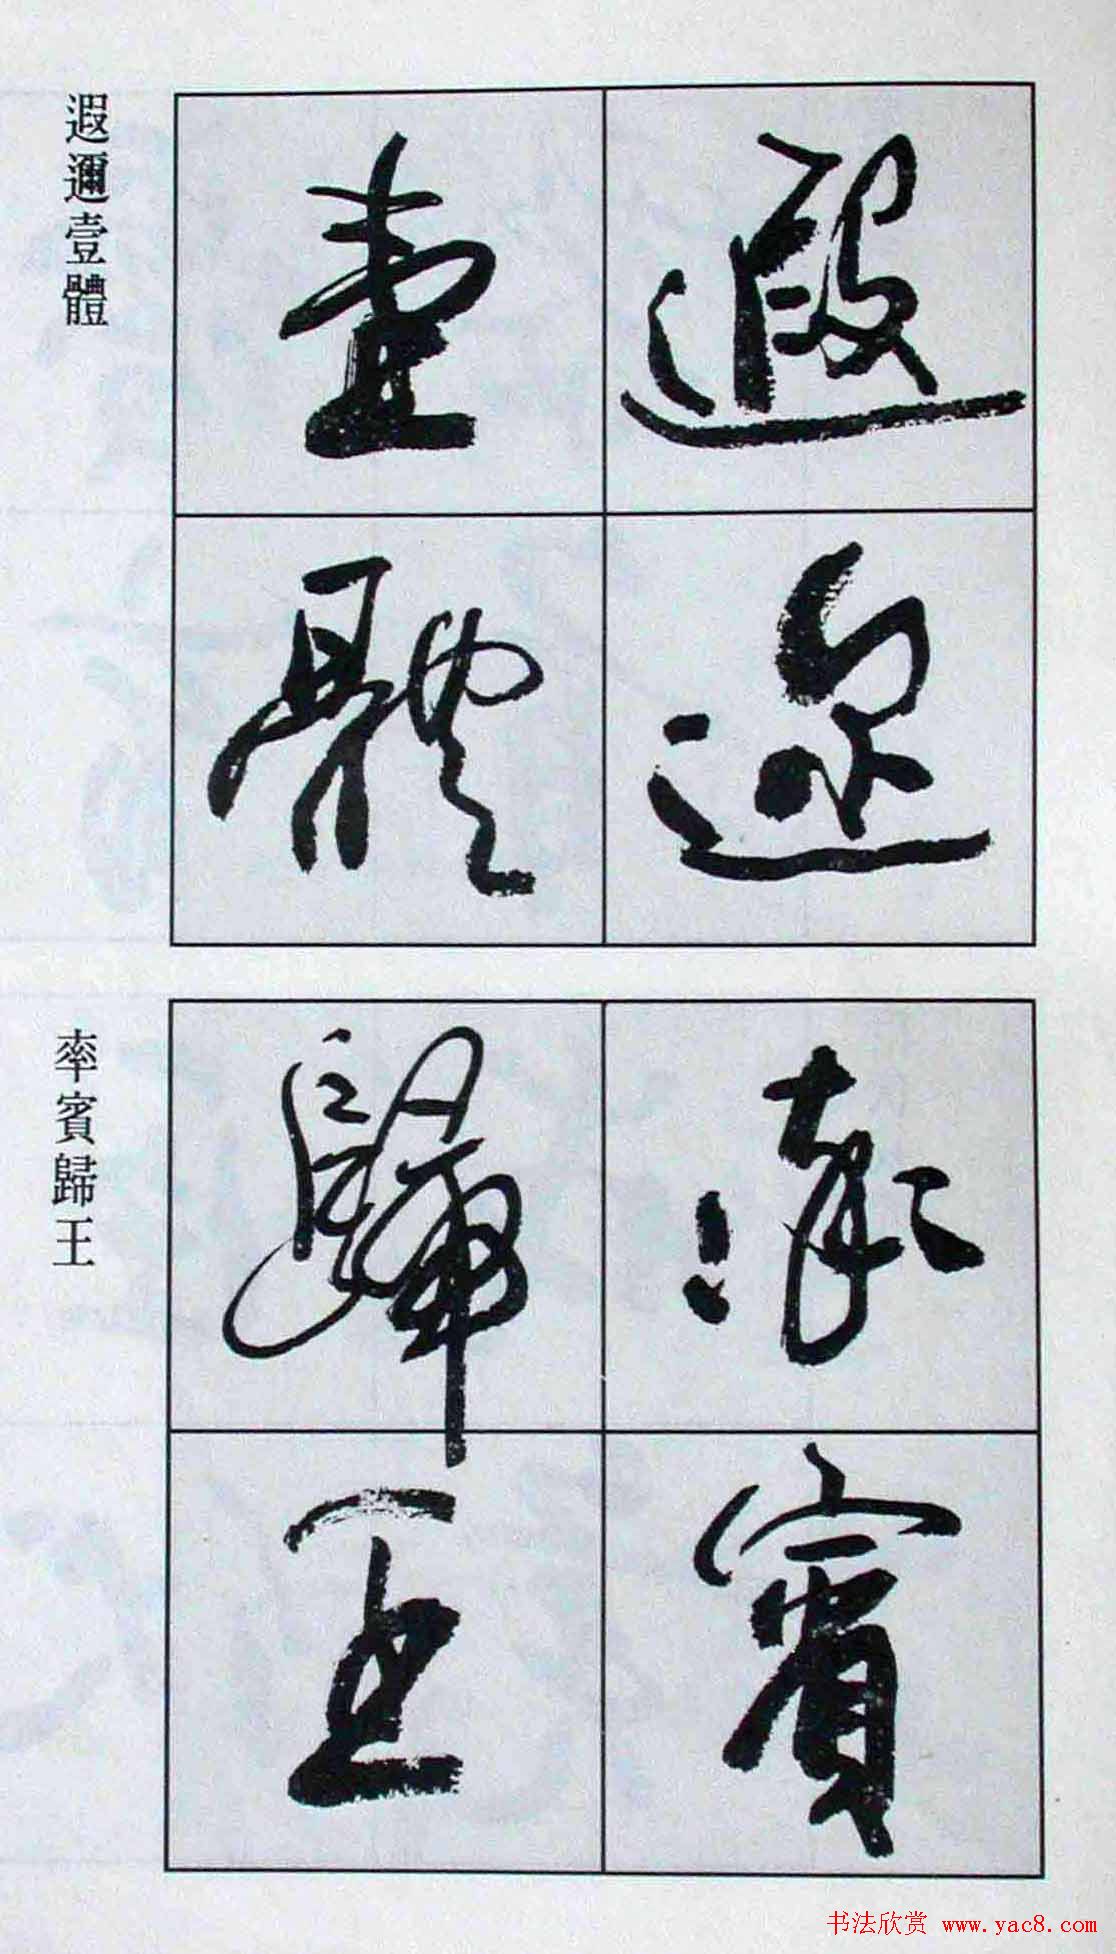 遐邇
壹體
遐邇壹體
率賓
歸王
率賓歸王
书法欣赏 www.yac8.com